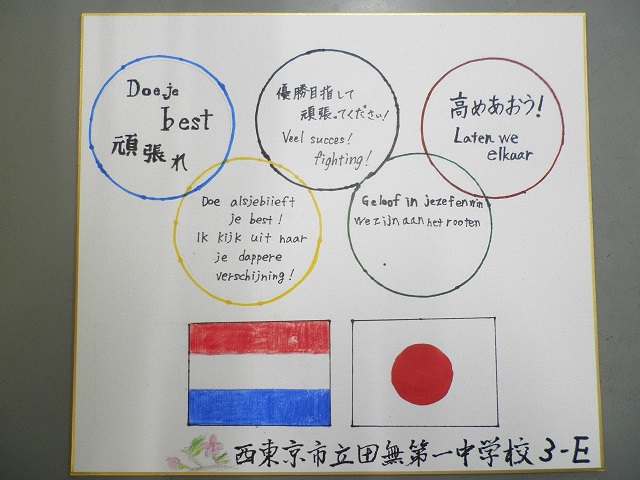 Doe je
best
頑張れ
優勝目指して
頑張ってください!
Veel succes!
fighting!
高めあおう!
Laten we
elkaar
Doe alsjebiieft
je best!
Ik kijk uit naar
je dappere
verschijning!
Geloof in jezefenwin
we zijn aan het rooten
西東京市立田無第一中学校 3-E